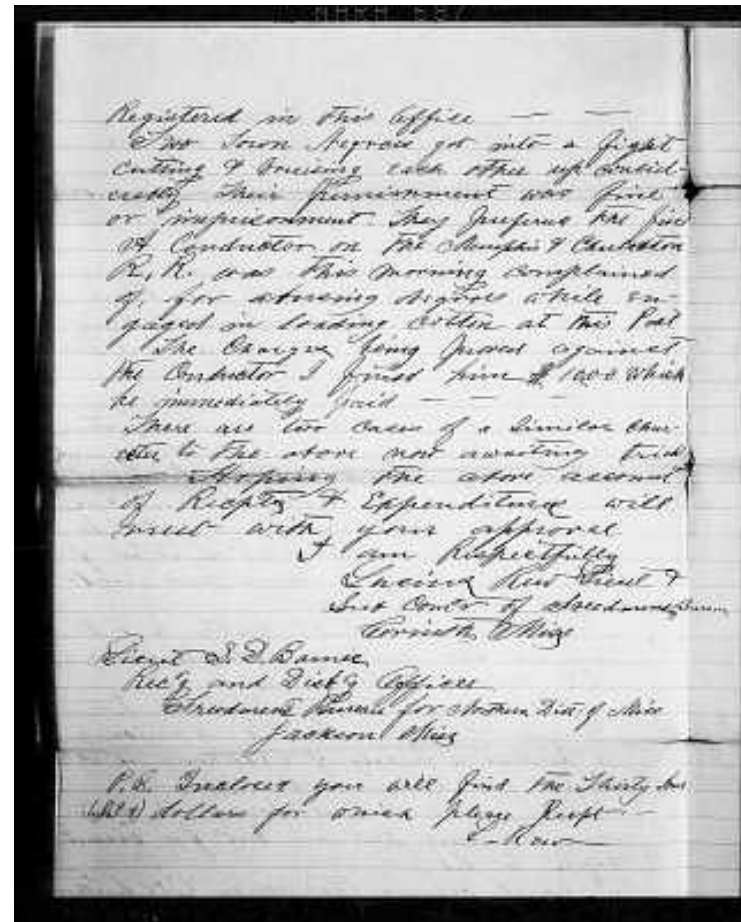 Registered in this Office — —
Two Town Negroes got into a fight
cutting & bruising each other up consid-
erably Their punishment was fine
or imprisonment. They prefered the fine
A Conductor on the Memphis & Charleston
R. R. was this morning complained
of, for abusing Negroes while en-
gaged in loading Cotton at this Post
The Charges being proved against
the Conductor I fined him $ 10.00 which
he immediately paid — — —
There are two cases of a similar char-
acter to the above now awaiting trial
Hoping the above account
of Recpts & Expenditures will
meet with your approval
I am Respectfully
Lieut &
Sub Comr of Freedmens Bureau
Corinth Miss
Lieut S. D. Barnes
Rec'g and Disb'g Officer
Freedmens Bureau for Northern Dist of Miss
Jackson Miss
P.S. Inclosed you will find the Thirty
dollars for which please Recpt —